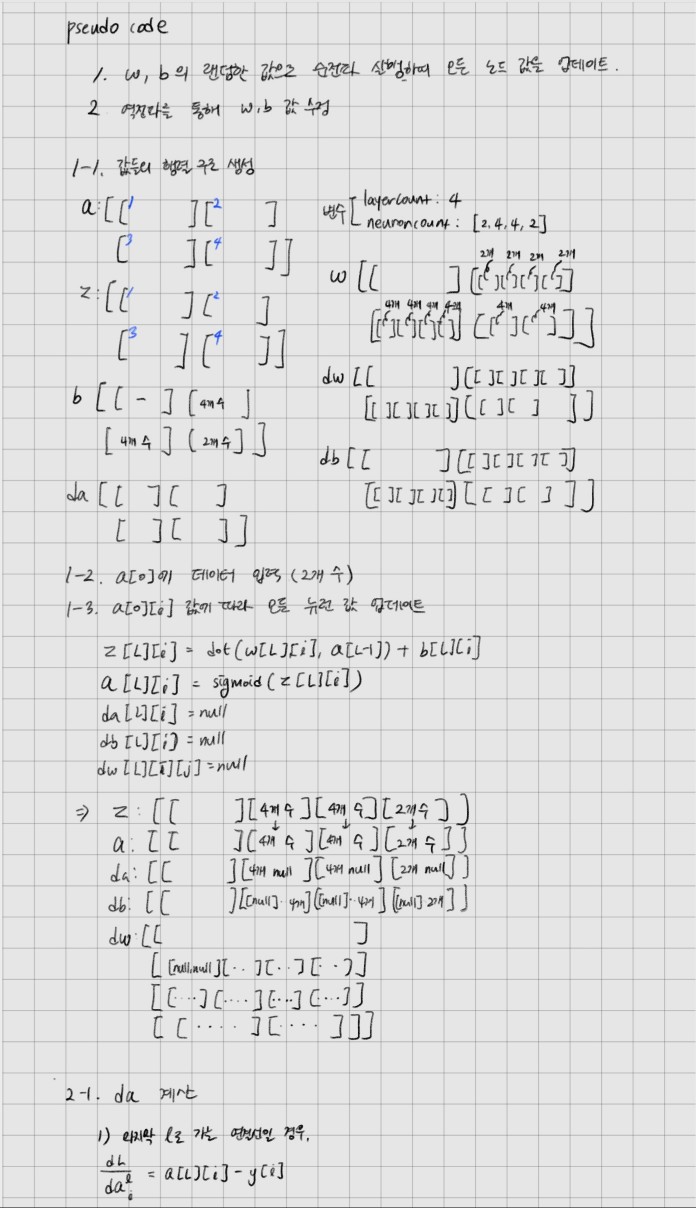 pseudo code
1. w, b의 랜덤한 값으로 순전파 실행하여 모든 노드 값을 업데이트.
2 역전파을 통해 w, b 값 수정
1-1. 값들의 행렬 구조 생성
a: [[1 ][2 ]
[3 ][4 ]]
z: [[1 ][2 ]
[3 ][4 ]]
b [[ - ] [4개 수 ]
[4개 수 ] [2개 수 ]]
da [[ ][ ]
[ ][ ]]
변수 [ layercount : 4
neuroncount : [2, 4, 4, 2]
2개 2개 2개 2개
w [[ ] [[ ][ ][ ][ ]]
4개 4개 4개 4개 4개 4개
[[ ][ ][ ][ ]] [[ ][ ]]]
dw [[ ][[ ][ ][ ][ ]]
[[ ][ ][ ][ ]][[ ][ ]]]
db [[ ][[ ][ ][ ][ ]]
[[ ][ ][ ][ ]][[ ][ ]]]
1-2. a[0]에 데이터 입력 (2개 수)
1-3. a[0][i] 값에 따라 모든 뉴런 값 업데이트
z[L][i] = dot(w[L][i], a[L-1]) + b[L][i]
a[L][i] = sigmoid(z[L][i])
da[L][i] = null
db[L][i] = null
dw[L][i][j] = null
⇒ z : [[ ][4개 수][4개 수][2개 수]]
↓ ↓ ↓
a : [[ ][4개 수][4개 수][2개 수]]
da : [[ ][4개 null][4개 null][2개 null]]
db : [[ ][[null]·· 4개][[null]·· 4개][[null] 2개]]
dw : [[ ]
[[null,null][··][··][··]]
[[····][····][····][····]]
[[·····][····]]]
2-1. da 계산
1) 마지막 l로 가는 연결선인 경우,
dL/daᵢˡ = a[L][i] - y[i]